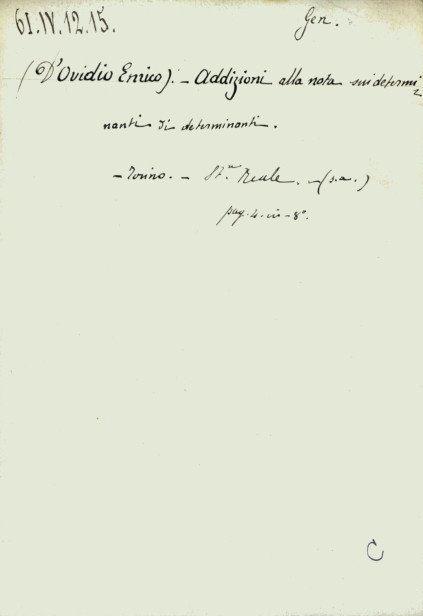 61.IV.12.15.
Gen.
(D'Ovidio Enrico). - Addizioni alla nota sui determi=
nanti di determinanti.
- Torino. - St.ª Reale. - (s.a.)
pag. 4. in - 8º.
C